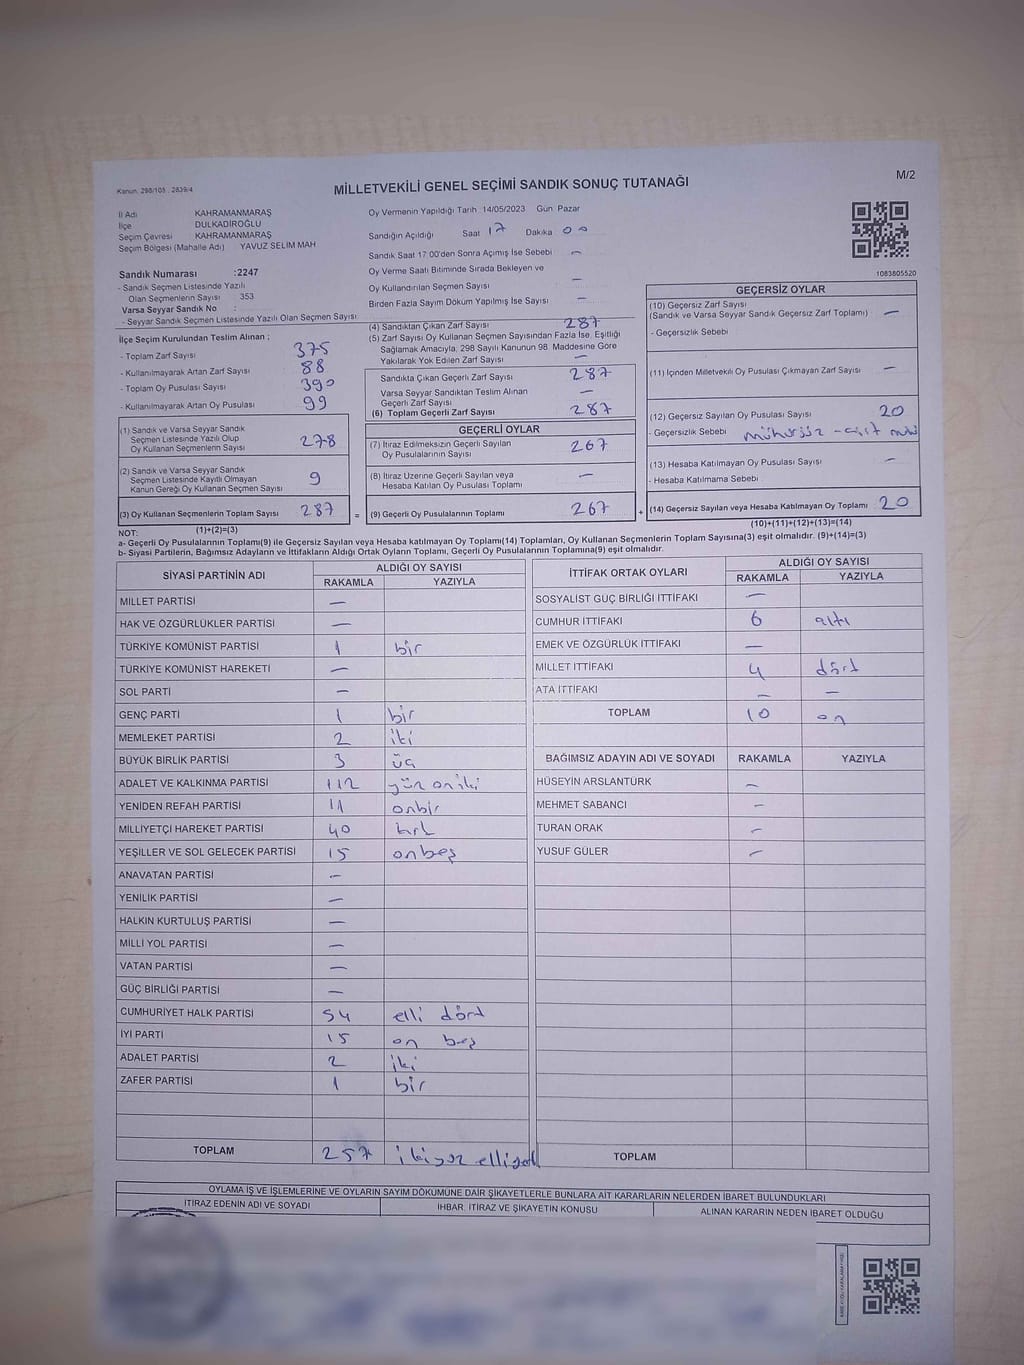 Kanun: 298/105 , 2839/4
MİLLETVEKİLİ GENEL SEÇİMİ SANDIK SONUÇ TUTANAĞI
M/2
İl Adı KAHRAMANMARAŞ
İlçe DULKADİROĞLU
Seçim Çevresi KAHRAMANMARAŞ
Seçim Bölgesi (Mahalle Adı) YAVUZ SELİM MAH
Oy Vermenin Yapıldığı Tarih 14/05/2023 Gün Pazar
Sandığın Açıldığı Saat 17 Dakika 00
Sandık Saat 17:00'den Sonra Açımış İse Sebebi –
Oy Verme Saati Bitiminde Sırada Bekleyen ve
Oy Kullandırılan Seçmen Sayısı –
Birden Fazla Sayım Döküm Yapılmış İse Sayısı –
1083805520
Sandık Numarası :2247
- Sandık Seçmen Listesinde Yazılı
Olan Seçmenlerin Sayısı : 353
Varsa Seyyar Sandık No :
- Seyyar Sandık Seçmen Listesinde Yazılı Olan Seçmen Sayısı:
İlçe Seçim Kurulundan Teslim Alınan ;
- Toplam Zarf Sayısı 375
- Kullanılmayarak Artan Zarf Sayısı 88
- Toplam Oy Pusulası Sayısı 390
- Kullanılmayarak Artan Oy Pusulası 99
(1) Sandık ve Varsa Seyyar Sandık
Seçmen Listesinde Yazılı Olup
Oy Kullanan Seçmenlerin Sayısı 278
(2) Sandık ve Varsa Seyyar Sandık
Seçmen Listesinde Kayıtlı Olmayan
Kanun Gereği Oy Kullanan Seçmen Sayısı 9
(3) Oy Kullanan Seçmenlerin Toplam Sayısı 287
(4) Sandıktan Çıkan Zarf Sayısı 287
(5) Zarf Sayısı Oy Kullanan Seçmen Sayısından Fazla İse, Eşitliği
Sağlamak Amacıyla, 298 Sayılı Kanunun 98. Maddesine Göre
Yakılarak Yok Edilen Zarf Sayısı –
Sandıkta Çıkan Geçerli Zarf Sayısı 287
Varsa Seyyar Sandıktan Teslim Alınan
Geçerli Zarf Sayısı –
(6) Toplam Geçerli Zarf Sayısı 287
GEÇERLİ OYLAR
(7) İtiraz Edilmeksizin Geçerli Sayılan
Oy Pusulalarının Sayısı 267
(8) İtiraz Üzerine Geçerli Sayılan veya
Hesaba Katılan Oy Pusulası Toplamı –
= (9) Geçerli Oy Pusulalarının Toplamı 267 +
GEÇERSİZ OYLAR
(10) Geçersiz Zarf Sayısı
(Sandık ve Varsa Seyyar Sandık Geçersiz Zarf Toplamı) –
- Geçersizlik Sebebi
(11) İçinden Milletvekili Oy Pusulası Çıkmayan Zarf Sayısı –
(12) Geçersiz Sayılan Oy Pusulası Sayısı 20
- Geçersizlik Sebebi mühürsüz - çift
(13) Hesaba Katılmayan Oy Pusulası Sayısı –
- Hesaba Katılmama Sebebi
(14) Geçersiz Sayılan veya Hesaba Katılmayan Oy Toplamı 20
NOT: (1)+(2)=(3) (10)+(11)+(12)+(13)=(14)
a- Geçerli Oy Pusulalarının Toplamı(9) ile Geçersiz Sayılan veya Hesaba katılmayan Oy Toplamı(14) Toplamları, Oy Kullanan Seçmenlerin Toplam Sayısına(3) eşit olmalıdır. (9)+(14)=(3)
b- Siyasi Partilerin, Bağımsız Adayların ve İttifakların Aldığı Ortak Oyların Toplamı, Geçerli Oy Pusulalarının Toplamına(9) eşit olmalıdır.
SİYASİ PARTİNİN ADI ALDIĞI OY SAYISI
RAKAMLA YAZIYLA
MİLLET PARTİSİ –
HAK VE ÖZGÜRLÜKLER PARTİSİ –
TÜRKİYE KOMÜNİST PARTİSİ 1 bir
TÜRKİYE KOMÜNİST HAREKETİ –
SOL PARTİ –
GENÇ PARTİ 1 bir
MEMLEKET PARTİSİ 2 iki
BÜYÜK BİRLİK PARTİSİ 3 üç
ADALET VE KALKINMA PARTİSİ 112 yüz oniki
YENİDEN REFAH PARTİSİ 11 onbir
MİLLİYETÇİ HAREKET PARTİSİ 40 kırk
YEŞİLLER VE SOL GELECEK PARTİSİ 15 onbeş
ANAVATAN PARTİSİ –
YENİLİK PARTİSİ –
HALKIN KURTULUŞ PARTİSİ –
MİLLİ YOL PARTİSİ –
VATAN PARTİSİ –
GÜÇ BİRLİĞİ PARTİSİ –
CUMHURİYET HALK PARTİSİ 54 elli dört
İYİ PARTİ 15 on beş
ADALET PARTİSİ 2 iki
ZAFER PARTİSİ 1 bir
TOPLAM 257 ikiyüz elliyedi
İTTİFAK ORTAK OYLARI ALDIĞI OY SAYISI
RAKAMLA YAZIYLA
SOSYALİST GÜÇ BİRLİĞİ İTTİFAKI –
CUMHUR İTTİFAKI 6 altı
EMEK VE ÖZGÜRLÜK İTTİFAKI –
MİLLET İTTİFAKI 4 dört
ATA İTTİFAKI – –
TOPLAM 10 on
BAĞIMSIZ ADAYIN ADI VE SOYADI RAKAMLA YAZIYLA
HÜSEYİN ARSLANTÜRK –
MEHMET SABANCI –
TURAN ORAK –
YUSUF GÜLER –
TOPLAM
OYLAMA İŞ VE İŞLEMLERİNE VE OYLARIN SAYIM DÖKÜMÜNE DAİR ŞİKAYETLERLE BUNLARA AİT KARARLARIN NELERDEN İBARET BULUNDUKLARI
İTİRAZ EDENİN ADI VE SOYADI İHBAR, İTİRAZ VE ŞİKAYETİN KONUSU ALINAN KARARIN NEDEN İBARET OLDUĞU